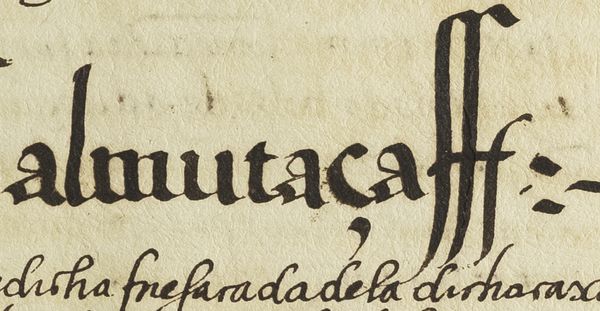 almutaçaff :-
dicha fue sacada de la dicha